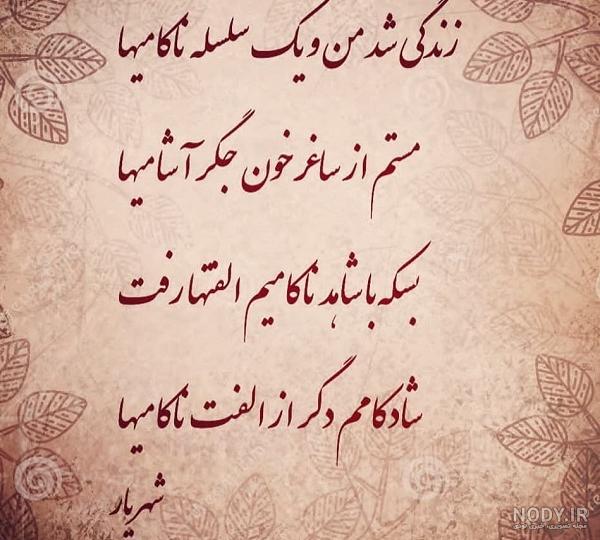 زندگی شد من و یک سلسله ناکامیها
مستم از ساغر خون جگر آشامیها
بسکه با شاهد ناکامیم الفتها رفت
شادکامم دگر از الفت ناکامیها
شهریار
NODY.IR